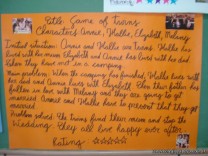 Title: Game of Twins
Characters: Annie, Hallie, Elizabeth, Melany
Initial situation: Annie and Hallie are twins. Hallie has
lived with his mum Elizabeth and Annie has lived with his dad
When they have met in a camping.
Main problem: When the camping has finished, Hallie lives with
her dad and Annie lives with Elizabeth. Then their father has
fallen in love with Melany and they are going to get
married. Annie and Hallie have to prevent that they get
married.
Problem solved: The twins find their mum and stop the
Wedding. They all live happy ever after
Rating: ☆☆☆☆☆